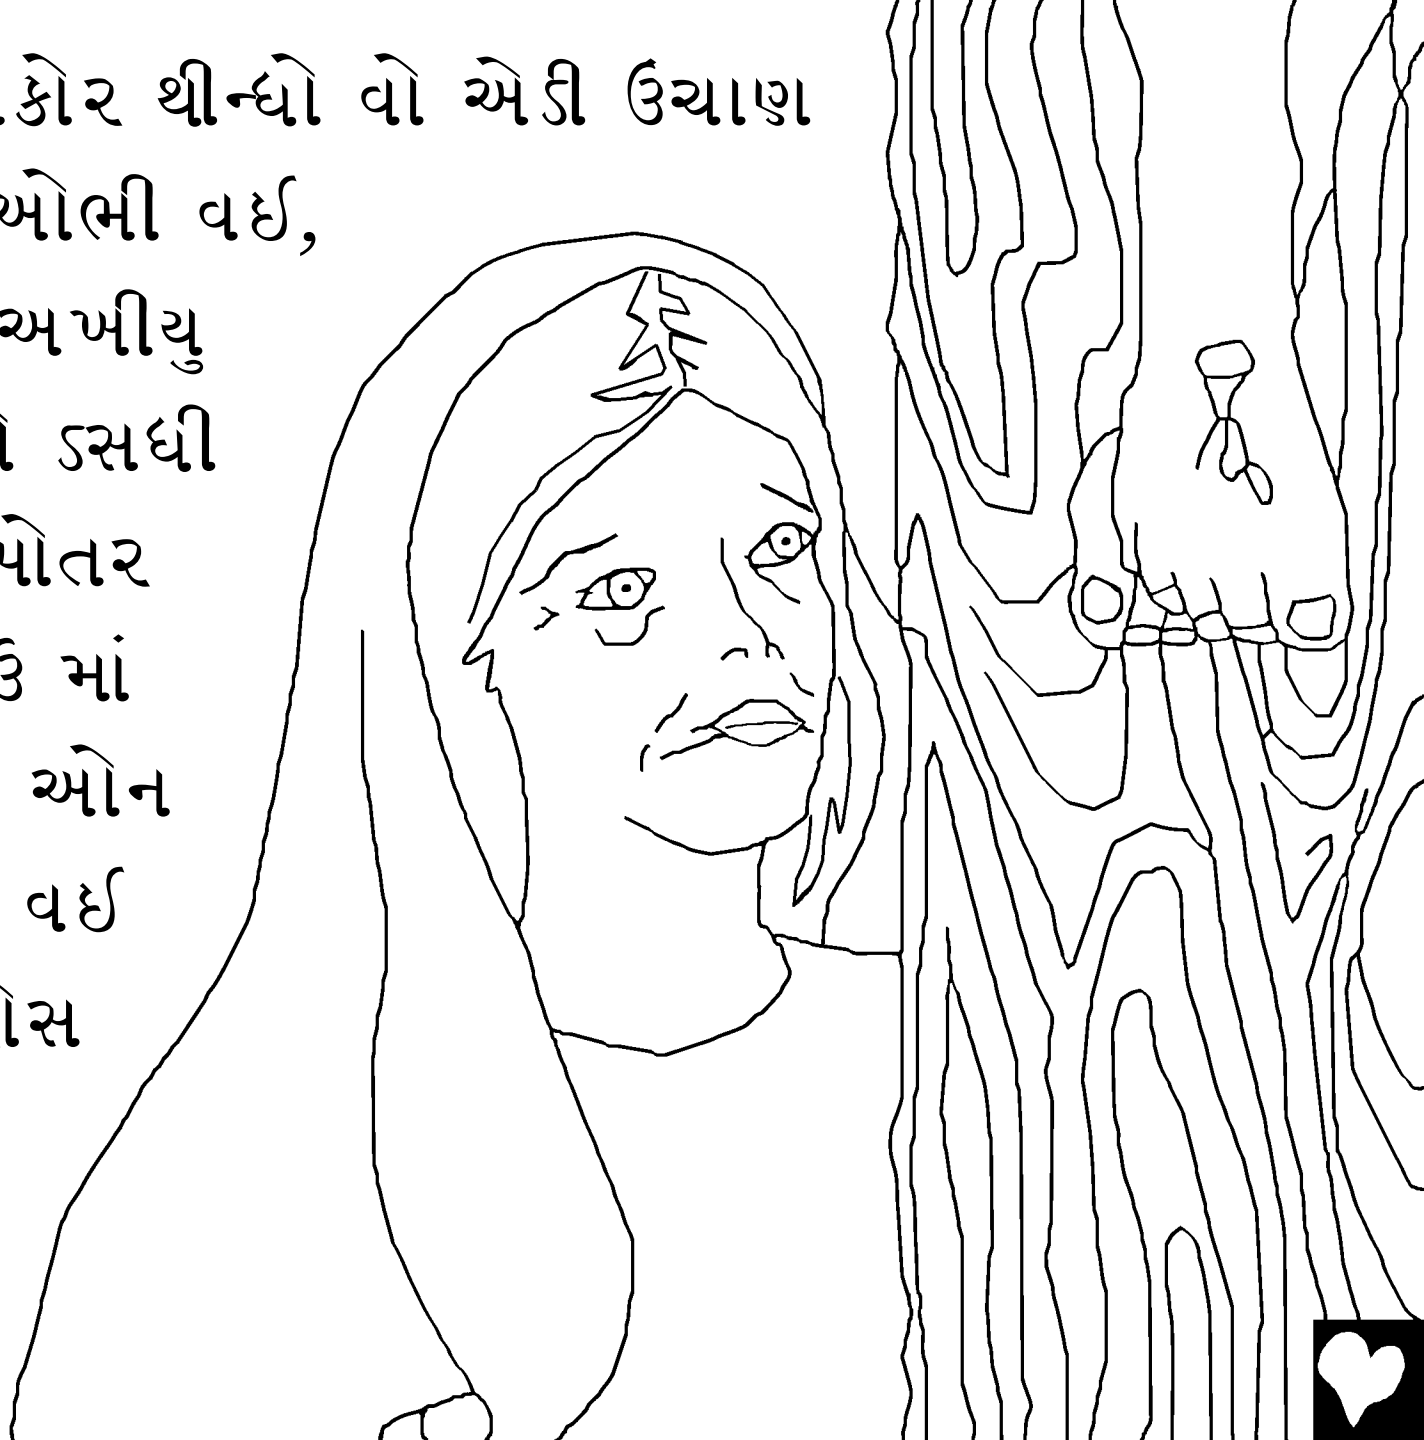 કોર થીન્ધો વો એડી ઉંચાણ
ઓભી વઈ,
અખીયુ
ડસધી
પોતર
માં
ઓન
વઈ